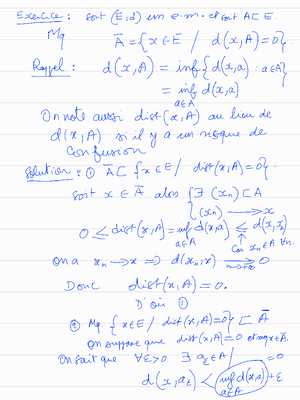 Exercice : soit (E,d) un e.m. et soit A⊂E.
Mq Ā = {x∈E / d(x,A)=0}.
Rappel : d(x,A) = inf{d(x,a) : a∈A}
= inf d(x,a)
a∈A
On note aussi dist(x,A) au lieu de
d(x,A) si il y a un risque de
confusion
Solution : ① Ā ⊂ {x∈E / dist(x,A)=0}.
soit x∈Ā alors { ∃ (xn)⊂A
(xn) → x
0 ≤ dist(x,A) = inf d(x,a) ≤ d(x,xn)
a∈A Car xn∈A ∀n.
On a xn → x ⇒ d(xn,x) → 0
n→+∞
Donc dist(x,A) = 0.
D'où ①
② Mq {x∈E / dist(x,A)=0} ⊂ Ā.
On suppose que dist(x,A)=0 et mq x∈Ā.
On sait que ∀ε>0 ∃ aε∈A / =0
d(x,aε) < inf d(x,a) + ε
a∈A